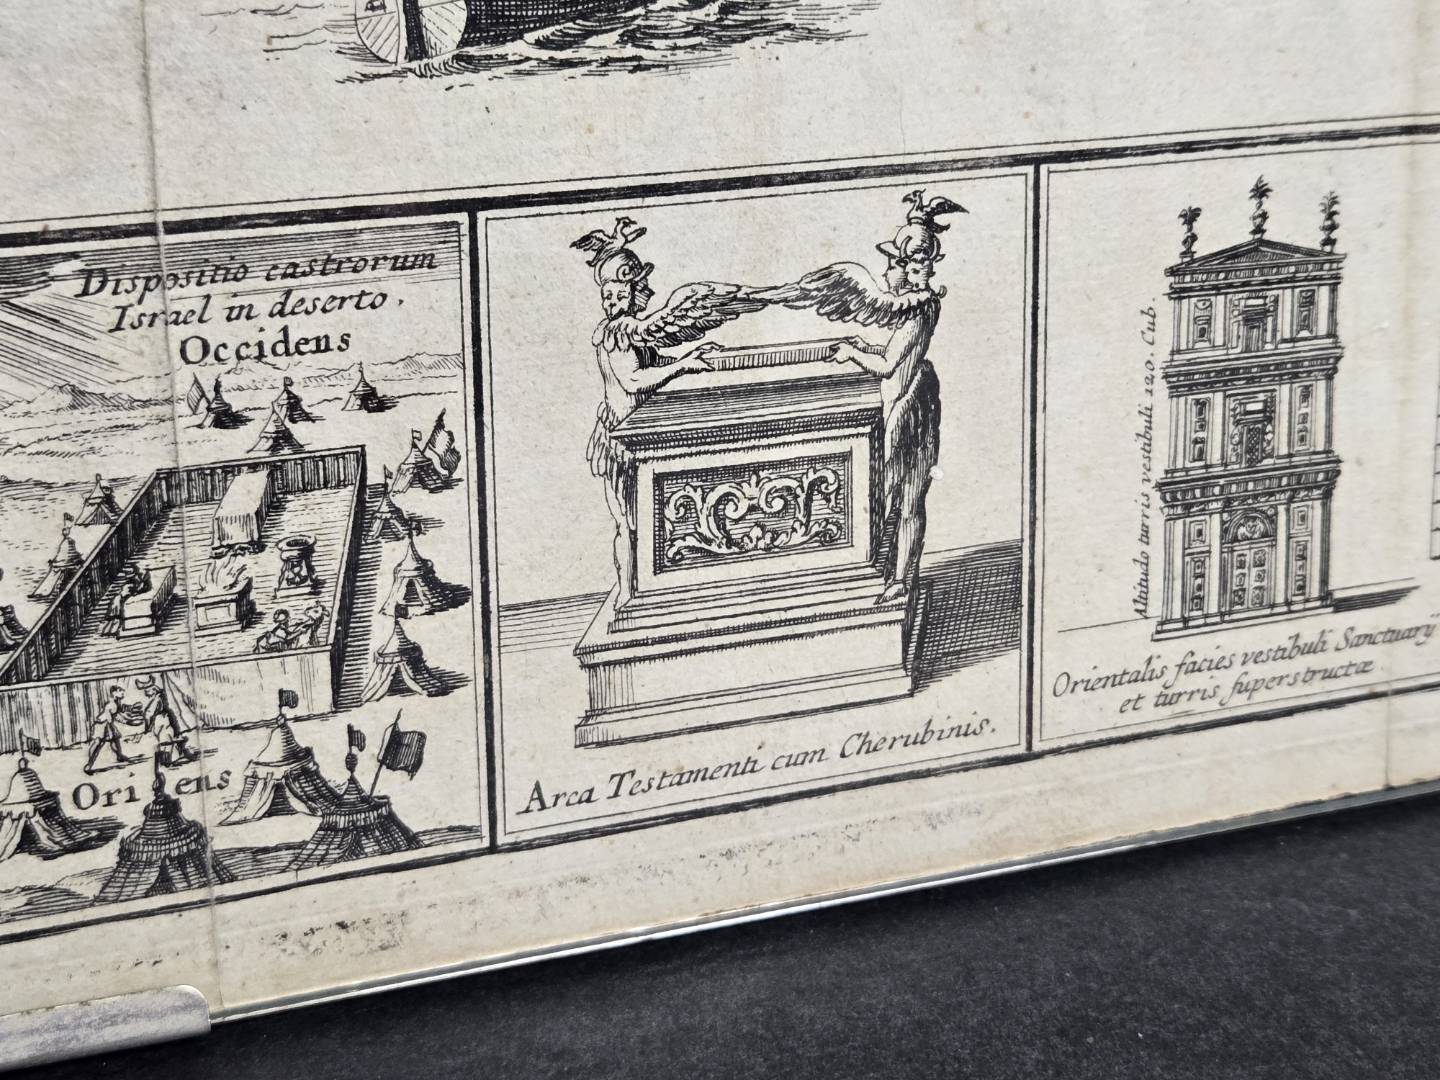 Dispositio castrorum
Israel in deserto.
Occidens
Oriens
Arca Testamenti cum Cherubinis.
Altitudo turris vestibuli 120. Cub.
Orientalis facies vestibuli Sanctuarÿ
et turris superstructæ